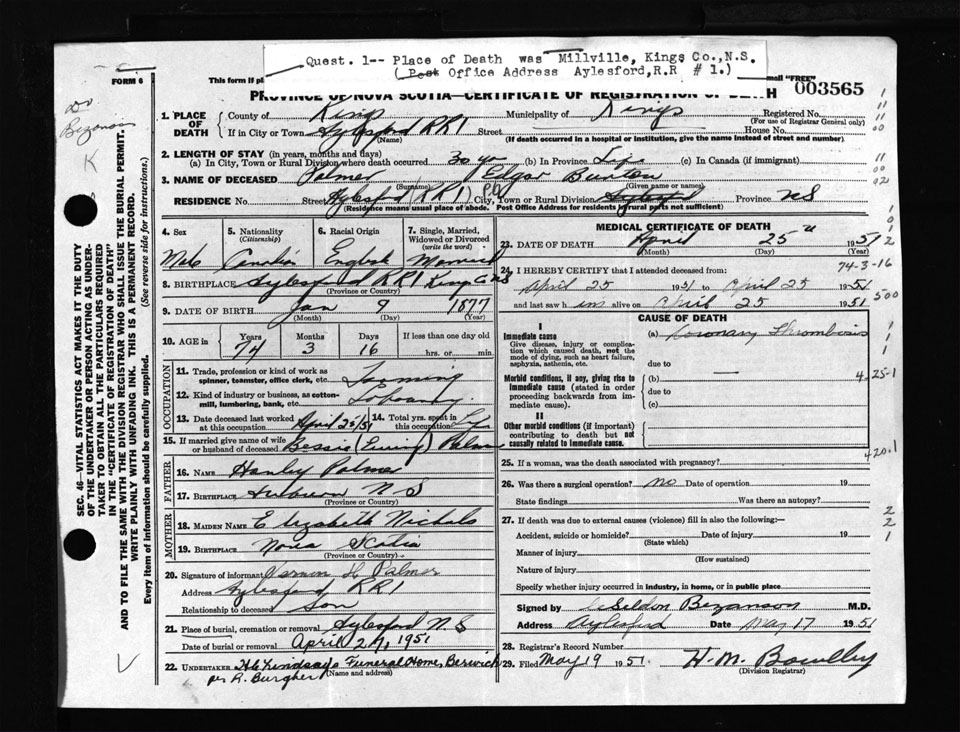 Quest. 1-- Place of Death was Millville, Kings Co.,N.S.
(Post Office Address Aylesford,R.R # 1.)
FORM 6
This form if
mail "FREE"
003565
PROVINCE OF NOVA SCOTIA—CERTIFICATE OF REGISTRATION OF DEATH
Dr
Bezanson
K
1. PLACE OF DEATH
County of Kings Municipality of Kings Registered No.
(For use of Registrar General only)
If in City or Town Aylesford RR1 Street House No.
(Name) (If death occurred in a hospital or institution, give the name instead of street and number)
2. LENGTH OF STAY (in years, months and days)
(a) In City, Town or Rural Division where death occurred 30 yr (b) In Province Life (c) In Canada (if immigrant)
3. NAME OF DECEASED Palmer Edgar Burton
(Surname) (Given name or names)
RESIDENCE No. Street Aylesford (RR1) P.O. City, Town or Rural Division Aylesford Province NS
(Residence means usual place of abode. Post Office Address for residents in rural parts not sufficient)
4. Sex
Male
5. Nationality (Citizenship)
Canadian
6. Racial Origin
English
7. Single, Married, Widowed or Divorced (write the word)
Married
8. BIRTHPLACE Aylesford RR1 Kings Co NS
(Province or Country)
9. DATE OF BIRTH Jan 9 1877
(Month) (Day) (Year)
10. AGE in Years Months Days If less than one day old
74 3 16 hrs. or min.
OCCUPATION
11. Trade, profession or kind of work as spinner, teamster, office clerk, etc. Farming
12. Kind of industry or business, as cotton-mill, lumbering, bank, etc.
13. Date deceased last worked at this occupation April 25/51 14. Total yrs. spent in this occupation Life
15. If married give name of wife or husband of deceased Bessie (Ewing) Palmer
FATHER
16. NAME Hanley Palmer
17. BIRTHPLACE N S
(Province or Country)
MOTHER
18. MAIDEN NAME Elizabeth Nichols
19. BIRTHPLACE Nova Scotia
(Province or Country)
20. Signature of informant Vernon H Palmer
Address Aylesford RR1
Relationship to deceased Son
21. Place of burial, cremation or removal Aylesford N S
Date of burial or removal April 27, 1951
22. UNDERTAKER H C Lindsay Funeral Home, Berwick
(Name and address)
per R. Burgher
MEDICAL CERTIFICATE OF DEATH
23. DATE OF DEATH April 25th 1951
(Month) (Day) (Year)
74-3-16
24. I HEREBY CERTIFY that I attended deceased from:
April 25 1951 to April 25 1951
and last saw him alive on April 25 1951
500
CAUSE OF DEATH
I
Immediate cause
Give disease, injury or complication which caused death, not the mode of dying, such as heart failure, asphyxia, asthenia, etc.
(a) Coronary Thrombosis
due to
Morbid conditions, if any, giving rise to immediate cause (stated in order proceeding backwards from immediate cause).
(b)
due to
(c)
4-25-1
II
Other morbid conditions (if important) contributing to death but not causally related to immediate cause.
420.1
25. If a woman, was the death associated with pregnancy?
26. Was there a surgical operation? no Date of operation 19
State findings Was there an autopsy?
27. If death was due to external causes (violence) fill in also the following:—
Accident, suicide or homicide? Date of injury 19
(State which)
Manner of injury
(How sustained)
Nature of injury
Specify whether injury occurred in industry, in home, or in public place
Signed by Weldon Bezanson M.D.
Address Aylesford Date May 17 1951
28. Registrar's Record Number
29. Filed May 19 1951. H. M. Bowlby
(Division Registrar)
SEC. 46—VITAL STATISTICS ACT MAKES IT THE DUTY
OF THE UNDERTAKER OR PERSON ACTING AS UNDER-
TAKER TO OBTAIN ALL THE PARTICULARS REQUIRED
IN THE "CERTIFICATE OF REGISTRATION OF DEATH"
AND TO FILE THE SAME WITH THE DIVISION REGISTRAR WHO SHALL ISSUE THE BURIAL PERMIT.
WRITE PLAINLY WITH UNFADING INK. THIS IS A PERMANENT RECORD.
Every item of information should be carefully supplied. (See reverse side for instructions.)